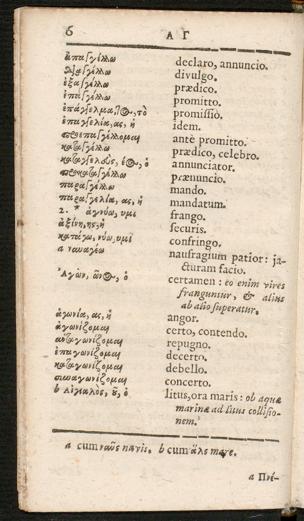 6 Α Γ
ἀπαγγέλλω declaro, annuncio.
διαγγέλλω divulgo.
ἐξαγγέλλω prædico.
ἐπαγγέλλω promitto.
ἐπάγγελμα, τ㋐, τὸ promissiò.
ἐπαγγελία, ας, ἡ idem.
προεπαγγέλλομαι antè promitto.
καταγγέλλω prædico, celebro.
καταγγελεὺς, έ㋐, ὁ annunciator.
προκαταγγέλλω prænuncio.
παραγγέλλω mando.
παραγγελία, ας, ἡ mandatum.
2. * ἀγνύω, υμι frango.
ἀξίνη, ης, ἡ securis.
κατάγω, νύω, υμι confringo.
a ναυαγέω naufragium patior: ja-
cturam facio.
Ἀγὼν, ῶν㋐, ὁ certamen: eo enim vires
franguntur, & alius
ab alio superatur.
ἀγωνία, ας, ἡ angor.
ἀγωνίζομαι certo, contendo.
ἀνταγωνίζομαι repugno.
ἐπαγωνίζομαι decerto.
καταγωνίζομαι debello.
συναγωνίζομαι concerto.
b Αἰγιαλὸς, οῦ, ὁ litus, ora maris: ob aquæ
marinæ ad litus collisio-
nem.
a cum ναῦς navis. b cum ἅλς mare.
a Πέ-